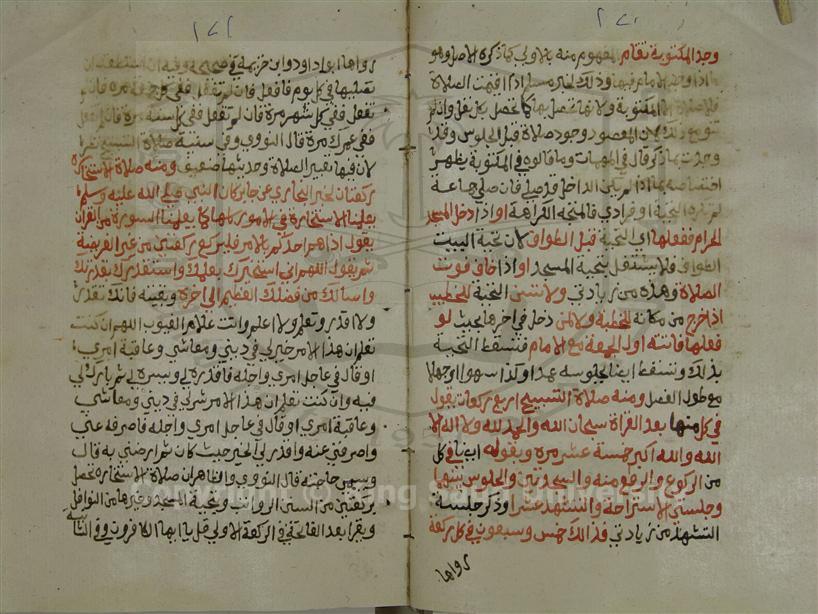 وجد المكتوبة تقام المفهوم منه بالاولى كما ذكره الاصل وهو
اذا دخل والامام فيها وذلك لخبر مسلم اذا اقيمت الصلاة
فلا صلاة الا المكتوبة ولانها تحصل بها كما تحصل بكل نفل وان لم
تنو مع ذلك لان المقصود وجود صلاة قبل الجلوس وقد
وجدت بما ذكر قال في المهمات وما قالوه في المكتوبة يظهر
اختصاصه بما اذا لم يكن الداخل قد صلى فان صلى جماعة
التحية او فرادى فالمتجه الكراهة او اذا دخل المسجد
الحرام ففعلها اي التحية قبل الطواف لان تحية البيت
الطواف فلا يشتغل بتحية المسجد او اذا خاف فوت
الصلاة وهذه من زيادتي ولا تسن التحية للخطيب
اذا خرج من مكانه للخطبة ولا لمن دخل في اخرها بحيث لو
فعلها فاتته اول الجمعة مع الامام فتسقط التحية
بذلك وتسقط ايضا بجلوسه عمدا وكذا سهوا او جهلا
مع طول الفصل ومنه صلاة التسبيح اربع ركعات يقول
في كل منها بعد القراة سبحان الله والحمد لله ولا اله الا
الله والله اكبر خمسة عشر مرة ويقوله اي باقي كل
من الركوع والرفع منه والسجدتين والجلوس بينهما
وجلستي الاستراحة والتشهد عشرا وذكر جلسة
التشهد من زيادتي فذالك خمس وسبعون في كل ركعة
رواها
رواها ابو داود وابن خزيمة في صحيحه وفيه ان استطعت ان
تصليها في كل يوم فافعل فان لم تفعل ففي كل جمعة مرة فان لم
تفعل ففي كل شهر مرة فان لم تفعل ففي كل سنة مرة فان لم تفعل
ففي عمرك مرة قال النووي وفي سنية صلاة التسبيح نظر
لان فيها تغيير الصلاة وحديثها ضعيف ومنه صلاة الاستخارة
ركعتان لخبر البخاري عن جابر كان النبي صلى الله عليه وسلم
يعلمنا الاستخارة في الامور كلها كما يعلمنا السورة من القران
يقول اذا هم احدكم بالامر فليركع ركعتين من غير الفريضة
ثم يقول اللهم اني استخيرك بعلمك واستقدرك بقدرتك
واسالك من فضلك العظيم الى اخره وبقيته فانك تقدر
ولا اقدر وتعلم ولا اعلم وانت علام الغيوب اللهم ان كنت
تعلم ان هذا الامر خير لي في ديني ومعاشي وعاقبة امري
او قال في عاجل امري واجله فاقدره لي ويسره لي ثم بارك لي
فيه وان كنت تعلم ان هذا الامر شر لي في ديني ومعاشي
وعاقبة امري او قال في عاجل امري واجله فاصرفه عني
واصرفني عنه واقدر لي الخير حيث كان ثم ارضني به قال
ويسمي حاجته قال النووي والظاهر ان صلاة الاستخارة تحصل
بركعتين من السنن الرواتب وبتحية المسجد وغيرها من النوافل
ويقرا بعد الفاتحة في الركعة الاولى قل يا ايها الكافرون وفي الثانية